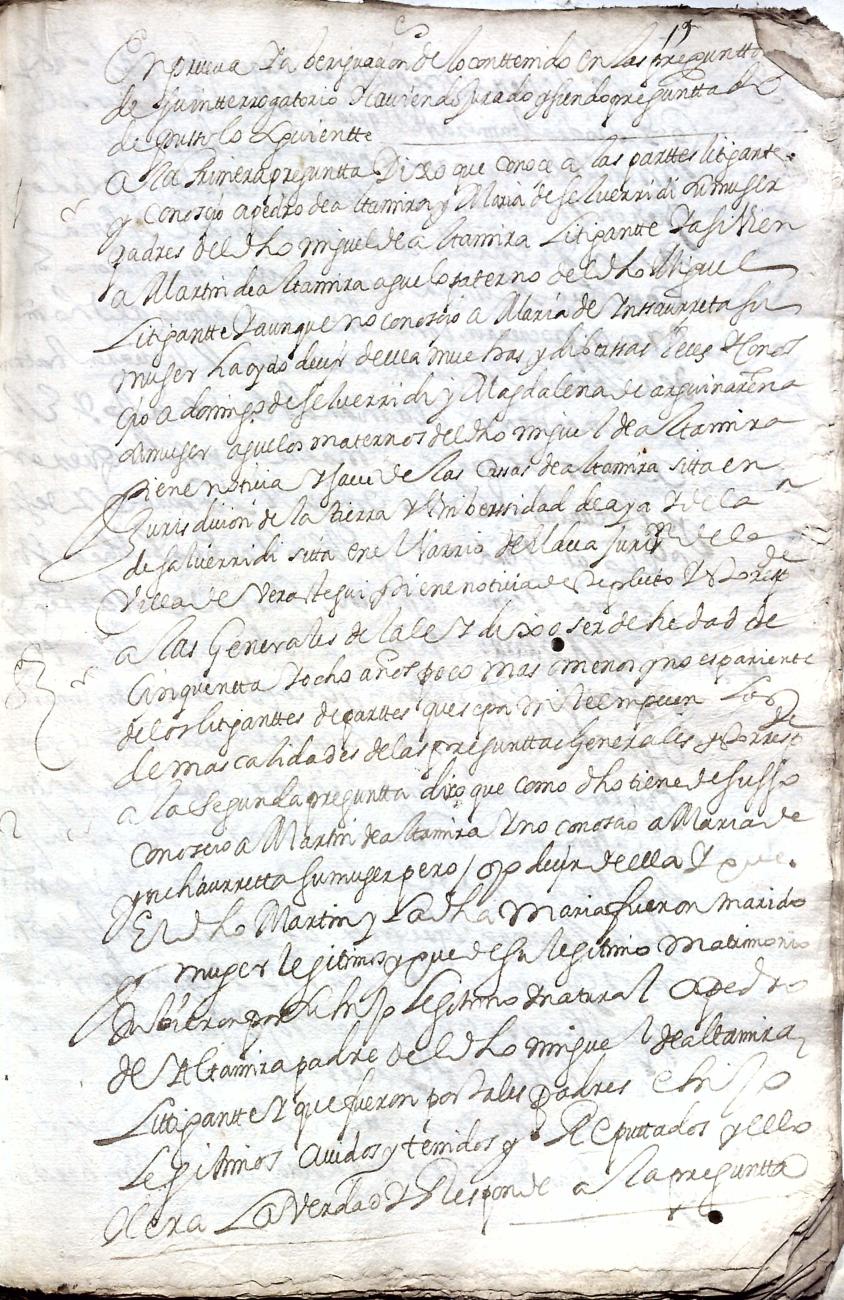 En prueva Y aberiguaçion de lo conttenido en las preguntta
de su intterrogatorio Y auiendo jurado y siendo preguntta do
de puso lo siguientte
A la Primera preguntta Dixo que conoce a las parttes litigante
y conoscio a pedro de altamira y Maria de selverridi su muger
padres del dho miguel de altamira Litigantte Y asi bien
a Martin de altamira aguelo paterno del dho Miguel
Litigantte Y aunque no conoscio a Maria de Ynsaurreta su
muger ha oydo decir de ella muchas y dibersas Veces Y Conos
çio a domingo de selverridi y Magdalena de arguinarena
su muger aguelos maternos del dho miguel de altamira
Tiene notiçia Y saue de las Casas de altamira sitta en
Jurisdiçion de la tierra Y Unibersidad de aya Y de la
de salverridi sitta en el Varrio de elcua juri on de la
Villa de Verastegui Y tiene notiçia de este pleito Y Respde
a las Generales de la ley dixo ser de hedad de
Cinquentta Y ocho años poco mas o menos y no es pariente
de los litiganttes de parttes que es ni le empecen Los
demas calidades de las preguntta Generales y Respde
a la segunda preguntta dixo que como dho tiene de susso
conoscio a Martin de altamira Y no conoscio a Maria de
ynchaurretta su muger pero oyo decir de ella Y que
El dho Martin y La dha Maria fueron marido
y muger legitimos y que de su legitimo matimonio
Vbieron por su hijo Legitimo Y natural a pedro
de Altamira padre del dho miguel de altamira
Littigantte Y que fueron por tales padres e hijo
Legitimos auidos y tenidos y Reputtados y ello
hera La Verdad Y Responde a la preguntta